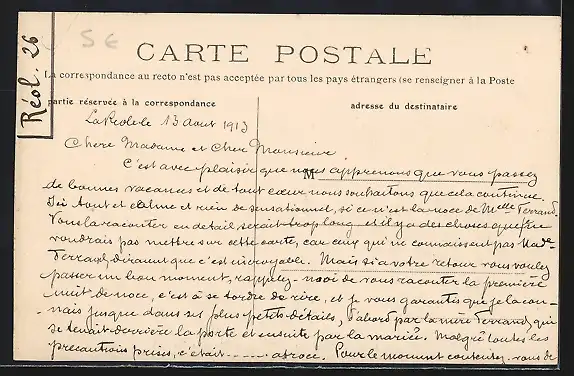 Réol. 26
S E
CARTE POSTALE
La correspondance au recto n'est pas acceptée par tous les pays étrangers (se renseigner à la Poste
partie réservée à la correspondance
adresse du destinataire
La Réole le 13 Aout 1913
Chere Madame et Cher Monsieur
C'est avec plaisir que nous apprenons que vous passez
de bonnes vacances et de tout cœur nous souhaitons que cela continue.
Ici tout est calme et rien de sensationnel, si ce n'est la noce de Melle Ferrand,
Vous la raconter en detail serait trop long et il y a des choses que je ne
voudrais pas mettre sur cette carte, car ceux qui ne connaissent pas Made
Ferrand, diraient que c'est incroyable. Mais si a votre retour vous voulez
passer un bon moment, rappelez-moi de vous raconter la première
nuit de noce, c'est à se tordre de rire, et je vous garantis que je la con-
nais jusque dans ses plus petits détails, d'abord par la mère Ferrand, qui
se tenait derrière la porte et ensuite par la mariée. Malgré toutes les
précautions prises, c'était ..... atroce. Pour le moment contentez-vous de